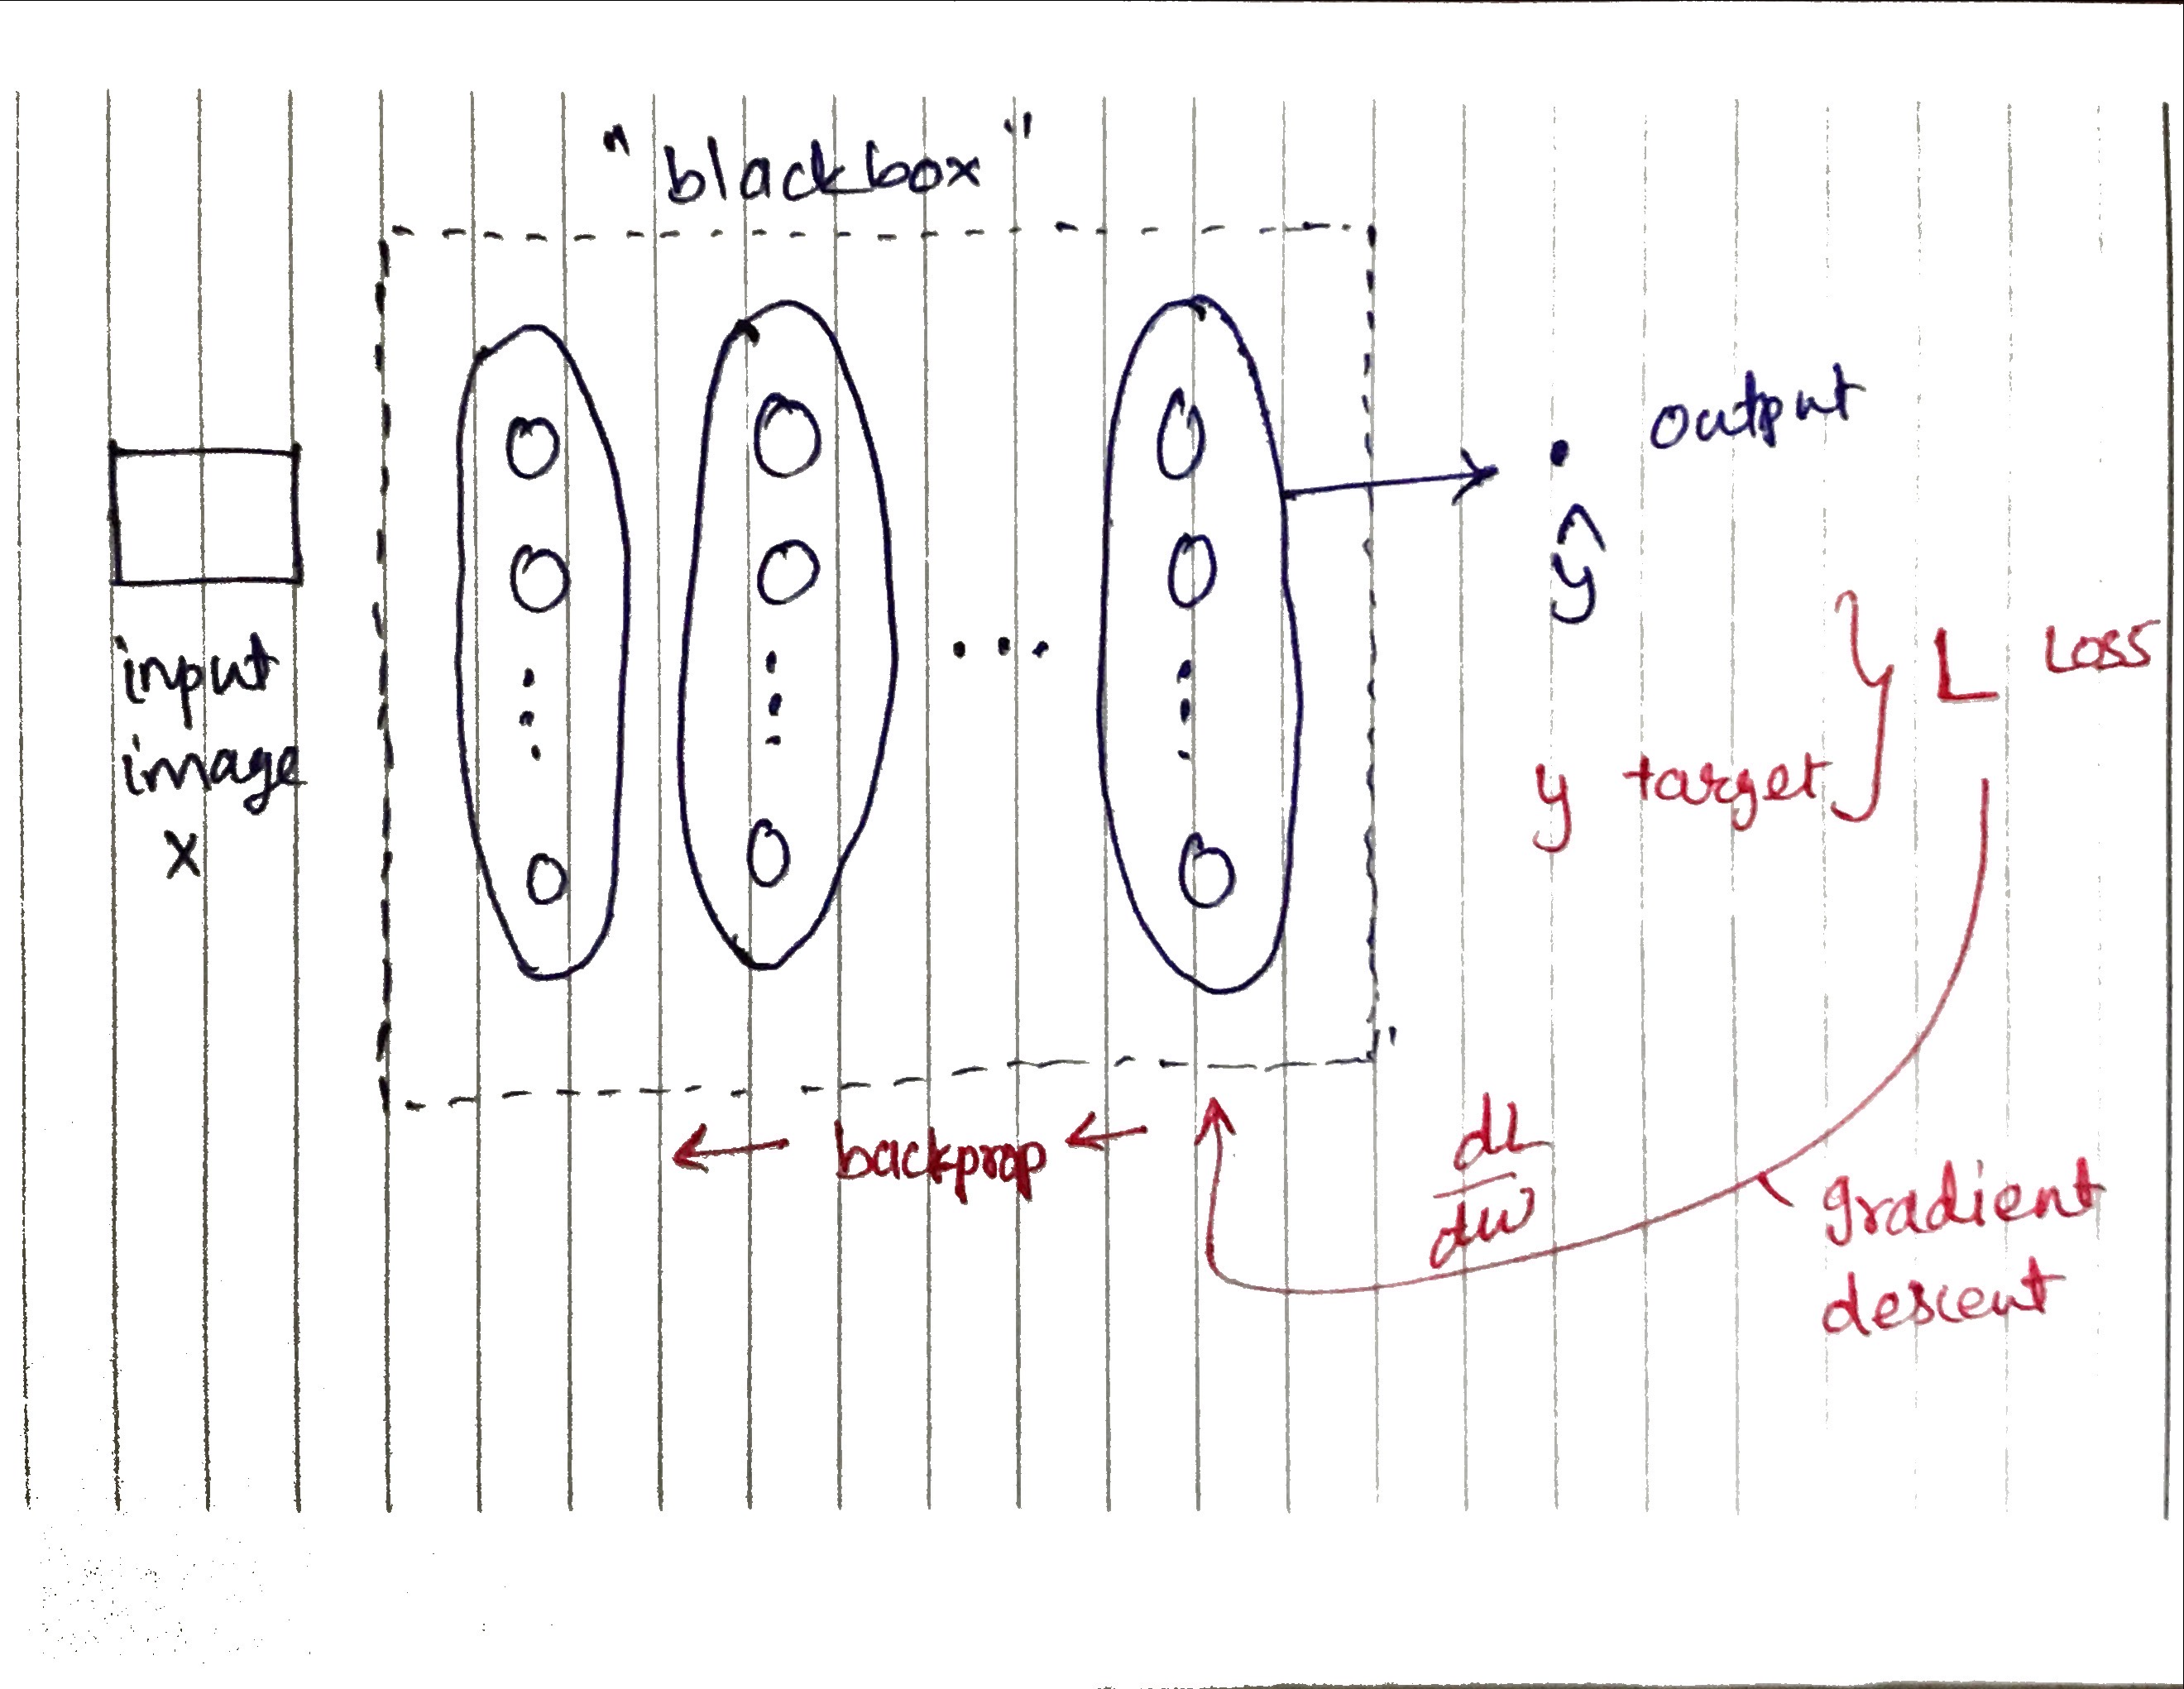 "blackbox"
input
image
x
...
output
ŷ
y target
L Loss
← backprop ←
dL
dw
gradient
descent